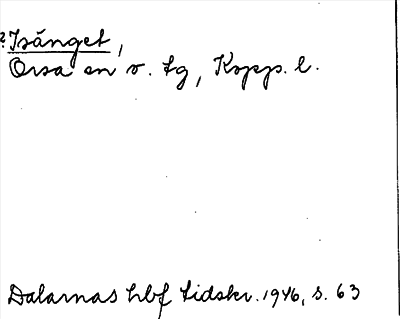 ? Isänget,
Orsa sn o. tg, Kopp. l.
Dalarnas hbf tidskr. 1946, s. 63